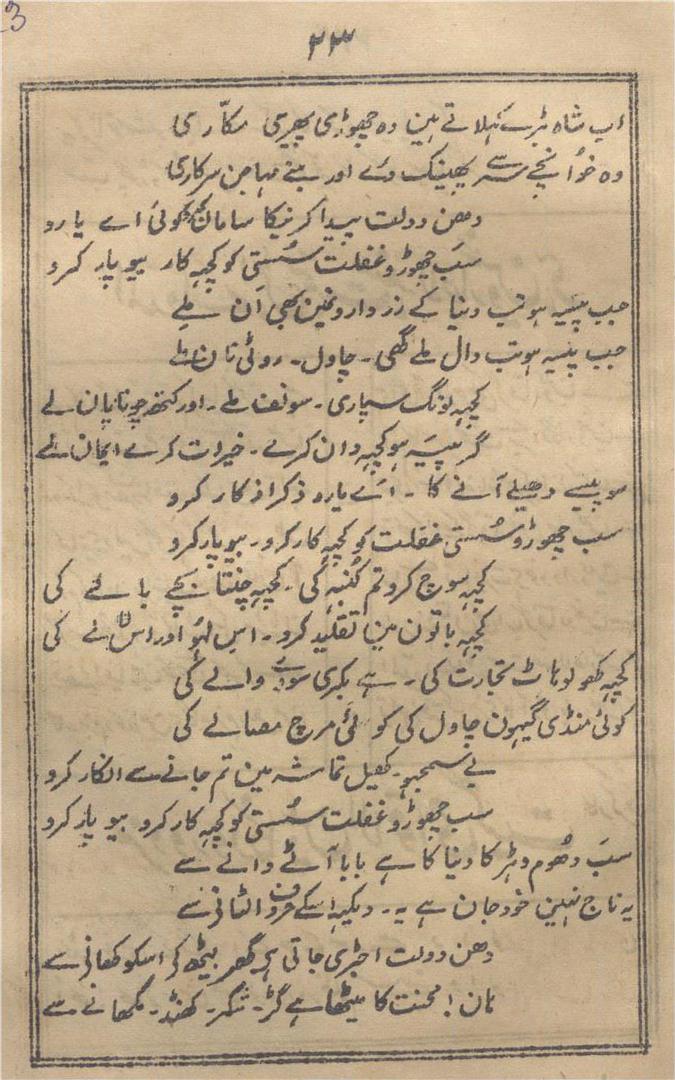 ۲۳
اب شاہ ہٹرب کہلاتے ہین وہ چھوڑی پھیری مکّاری
وہ خوانچے سر سے پھینک دئے اور بنے مہاجن سرکاری
دھن دولت پیدا کرنیکا سامان کچھ کوئی اے یارو
سب چھوڑو غفلت سُستی کو کچہہ کار بیوپار کرو
جب پیسہ ہو تب دنیا کے زر دارونمین بھی اَن ملے
جب پیسہ ہو تب دال ملے گھی۔ چاول۔ روٹی نان ملے
کچہہ لونگ سپاری۔ سونف ملے۔ اور کتھہ چونا پان ملے
گر پیسَہ ہو کچہہ دان کرے۔ خیرات کرے ایمان ملے
سو پیسے دھیلے آنے کا۔ اَے یارو ذکر اذکار کرو
سب چھوڑو سُستی غفلت کو کچہہ کار کرو۔ بیوپار کرو
کچہہ سوچ کرو تم کُنبہ کی۔ کچہہ چنتا بچے بالے کی
کچہہ باتون مین تقلید کرو۔ اس لہو اور اس لالے کی
کچہہ کھولو ہاٹ تجارت کی۔ ہے بکری سودے والے کی
کوئی منڈی گیہون چاول کی کوئی مرچ مصالے کی
بے سمجھو۔ کھیل تماشہ مین تم جانے سے انکار کرو
سب چھوڑو غفلت سُستی کو کچہہ کار کرو بیوپار کرو
سَب دھُوم دہڑکا دنیا کا ہے بابا آٹے دانے سے
یہ ناج نہین خود جان ہے یہ۔ دیکہہ اسکے حروف الٹانی سے
دھن دولت اجڑی جاتی ہے گھر بیٹھ کر اسکو کھانی سے
ہان! محنت کا میٹھا ہے گڑ۔ شکر۔ کھنڈ۔ مکھانے سے